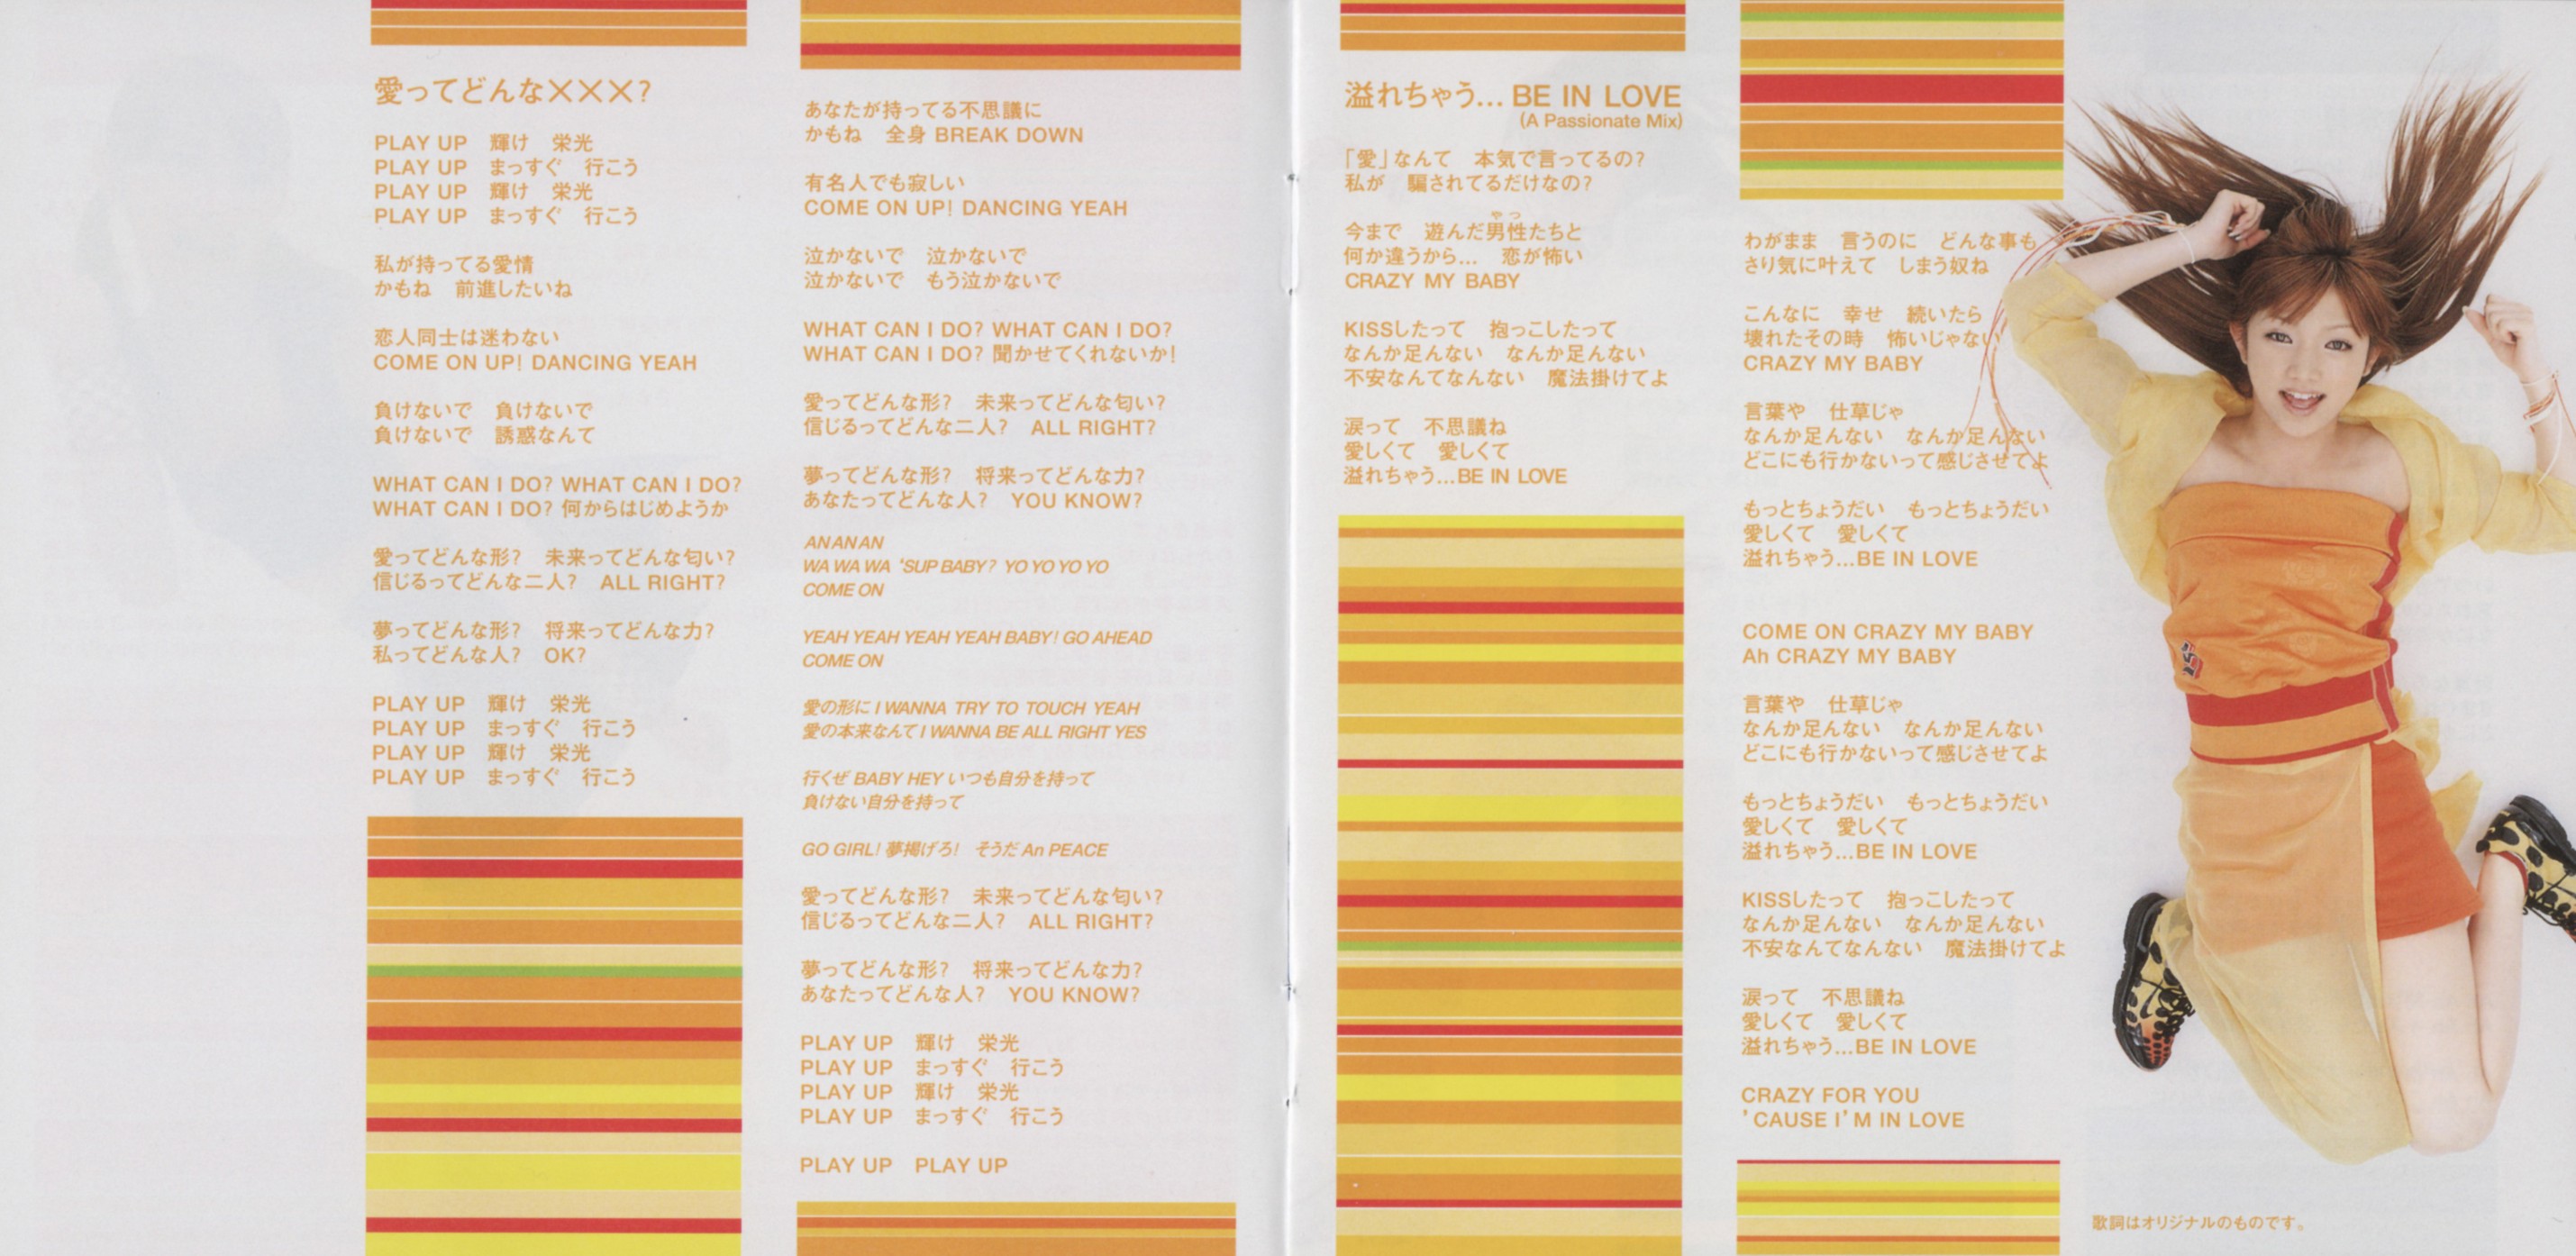 愛ってどんな×××?
PLAY UP　輝け　栄光
PLAY UP　まっすぐ　行こう
PLAY UP　輝け　栄光
PLAY UP　まっすぐ　行こう
私が持ってる愛情
かもね　前進したいね
恋人同士は迷わない
COME ON UP! DANCING YEAH
負けないで　負けないで
負けないで　誘惑なんて
WHAT CAN I DO? WHAT CAN I DO?
WHAT CAN I DO? 何からはじめようか
愛ってどんな形?　未来ってどんな匂い?
信じるってどんな二人?　ALL RIGHT?
夢ってどんな形?　将来ってどんな力?
私ってどんな人?　OK?
PLAY UP　輝け　栄光
PLAY UP　まっすぐ　行こう
PLAY UP　輝け　栄光
PLAY UP　まっすぐ　行こう
あなたが持ってる不思議に
かもね　全身 BREAK DOWN
有名人でも寂しい
COME ON UP! DANCING YEAH
泣かないで　泣かないで
泣かないで　もう泣かないで
WHAT CAN I DO? WHAT CAN I DO?
WHAT CAN I DO? 聞かせてくれないか!
愛ってどんな形?　未来ってどんな匂い?
信じるってどんな二人?　ALL RIGHT?
夢ってどんな形?　将来ってどんな力?
あなたってどんな人?　YOU KNOW?
AN AN AN
WA WA WA 'SUP BABY? YO YO YO YO
COME ON
YEAH YEAH YEAH YEAH BABY! GO AHEAD
COME ON
愛の形に I WANNA TRY TO TOUCH YEAH
愛の本来なんて I WANNA BE ALL RIGHT YES
行くぜ BABY HEY いつも自分を持って
負けない自分を持って
GO GIRL! 夢掲げろ!　そうだ An PEACE
愛ってどんな形?　未来ってどんな匂い?
信じるってどんな二人?　ALL RIGHT?
夢ってどんな形?　将来ってどんな力?
あなたってどんな人?　YOU KNOW?
PLAY UP　輝け　栄光
PLAY UP　まっすぐ　行こう
PLAY UP　輝け　栄光
PLAY UP　まっすぐ　行こう
PLAY UP　PLAY UP
溢れちゃう... BE IN LOVE
(A Passionate Mix)
「愛」なんて　本気で言ってるの?
私が　騙されてるだけなの?
やつ
今まで　遊んだ男性たちと
何か違うから...　恋が怖い
CRAZY MY BABY
KISSしたって　抱っこしたって
なんか足んない　なんか足んない
不安なんてなんない　魔法掛けてよ
涙って　不思議ね
愛しくて　愛しくて
溢れちゃう...BE IN LOVE
わがまま　言うのに　どんな事も
さり気に叶えて　しまう奴ね
こんなに　幸せ　続いたら
壊れたその時　怖いじゃない
CRAZY MY BABY
言葉や　仕草じゃ
なんか足んない　なんか足んない
どこにも行かないって感じさせてよ
もっとちょうだい　もっとちょうだい
愛しくて　愛しくて
溢れちゃう...BE IN LOVE
COME ON CRAZY MY BABY
Ah CRAZY MY BABY
言葉や　仕草じゃ
なんか足んない　なんか足んない
どこにも行かないって感じさせてよ
もっとちょうだい　もっとちょうだい
愛しくて　愛しくて
溢れちゃう...BE IN LOVE
KISSしたって　抱っこしたって
なんか足んない　なんか足んない
不安なんてなんない　魔法掛けてよ
涙って　不思議ね
愛しくて　愛しくて
溢れちゃう...BE IN LOVE
CRAZY FOR YOU
'CAUSE I'M IN LOVE
歌詞はオリジナルのものです。